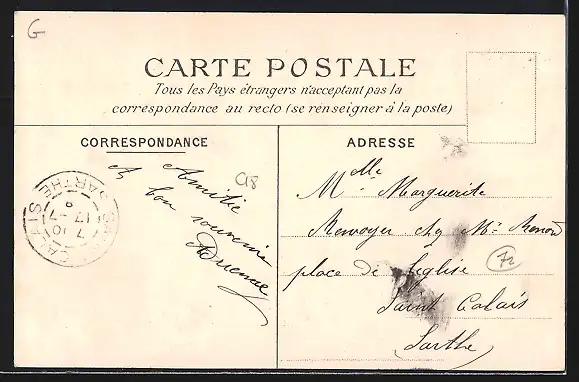 G
CARTE POSTALE
Tous les Pays étrangers n'acceptant pas la
correspondance au recto (se renseigner à la poste)
CORRESPONDANCE
ADRESSE
Amitié
& bon souvenir
Adrienne
C18
SAINT-CALAIS
SARTHE
17 -7
Melle Marguerite
chez Mr
place de l'église
Saint Calais
Sarthe
72